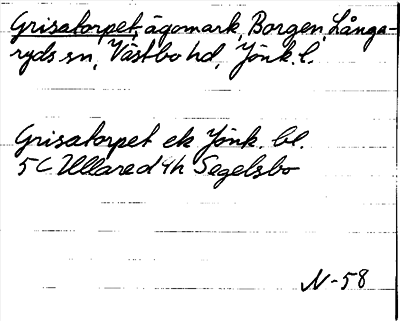 Grisatorpet, ägomark, Borgen, Långa-
ryds sn, Västbo hd, Jönk. l.
Grisatorpet ek Jönk. bl.
5C Ullared 4h Segelsbo
N-58